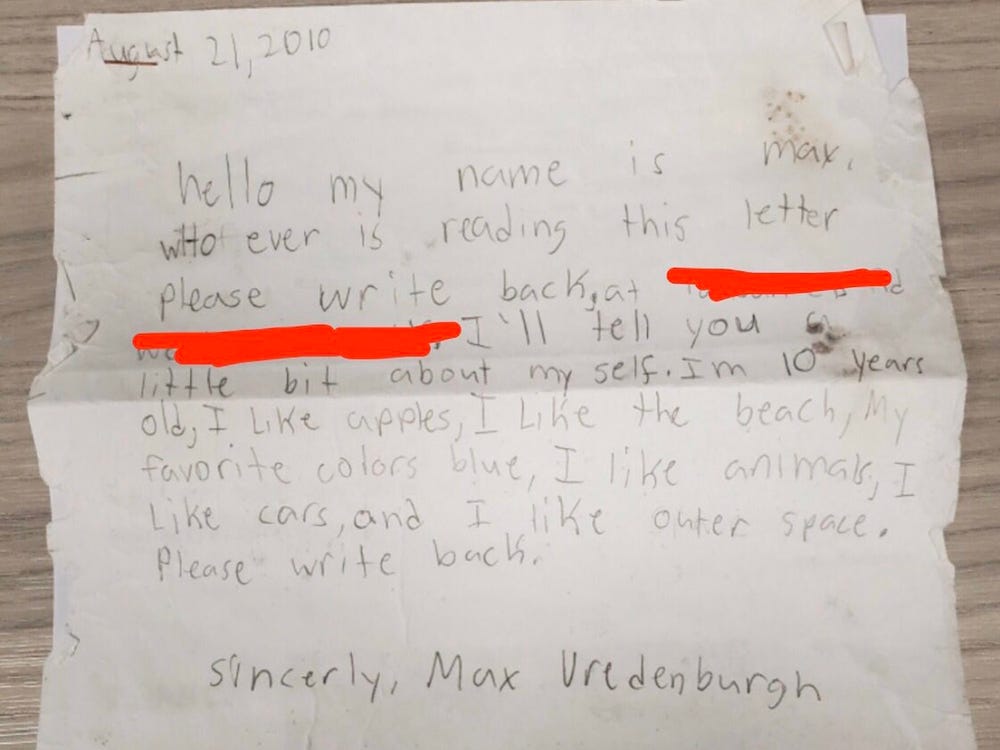 August 21, 2010
hello my name is max.
who ever is reading this letter
please write back, at
I'll tell you a
little bit about my self. Im 10 years
old, I Like apples, I Like the beach, My
favorite colors blue, I like animals, I
Like cars, and I like outer space.
Please write back.
sincerly, Max Vredenburgh